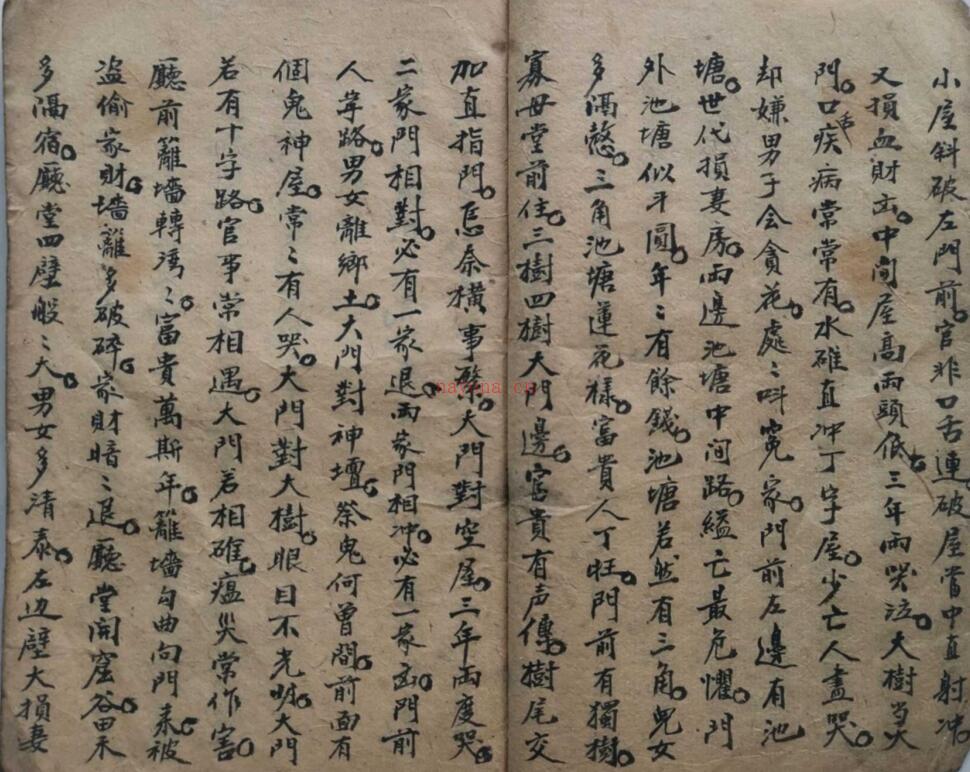 小屋斜破左門前。官非口舌連。破屋當中直射冲。
又損血財凶。中间屋高兩頭低。三年兩哭泣。大樹当大
門。口疾病常常有。水碓直冲丁字屋。少亡人盡哭。
却嫌男子会貪花。處〻叫冤家。門前左邊有池
塘。世代損妻房。兩邊池塘中间路。縊亡最危懼。門
外池塘似斗圓。年〻有餘錢。池塘若然有三角。兒女
多隔愁。三角池塘蓮花樣。富貴人丁旺。門前有獨樹。
寡母堂前住。三樹四樹大門邊。富貴有声傳。樹尾交
加直指門。忌奈橫事繁。大門對空屋。三年兩度哭。
二家門相對。必有一家退。兩家門相冲。必有一家凶。門前
人字路。男女離鄉土。大門對神壇。祭鬼何曾間。前面有
個鬼神屋。常〻有人哭。大門對大樹。眼目不光明。大門
若有十字路。官事常相遇。大門若相碓。瘟災常作害。
廳前籬墻轉湾〻。富貴萬斯年。籬墻勾曲向門来。被
盗偷家財。墻籬多破碎。家財暗〻退。廳堂開窟谷。田禾
多隔宿。廳堂四壁般〻大。男女多清泰。左边壁大損妻
natuna.cn